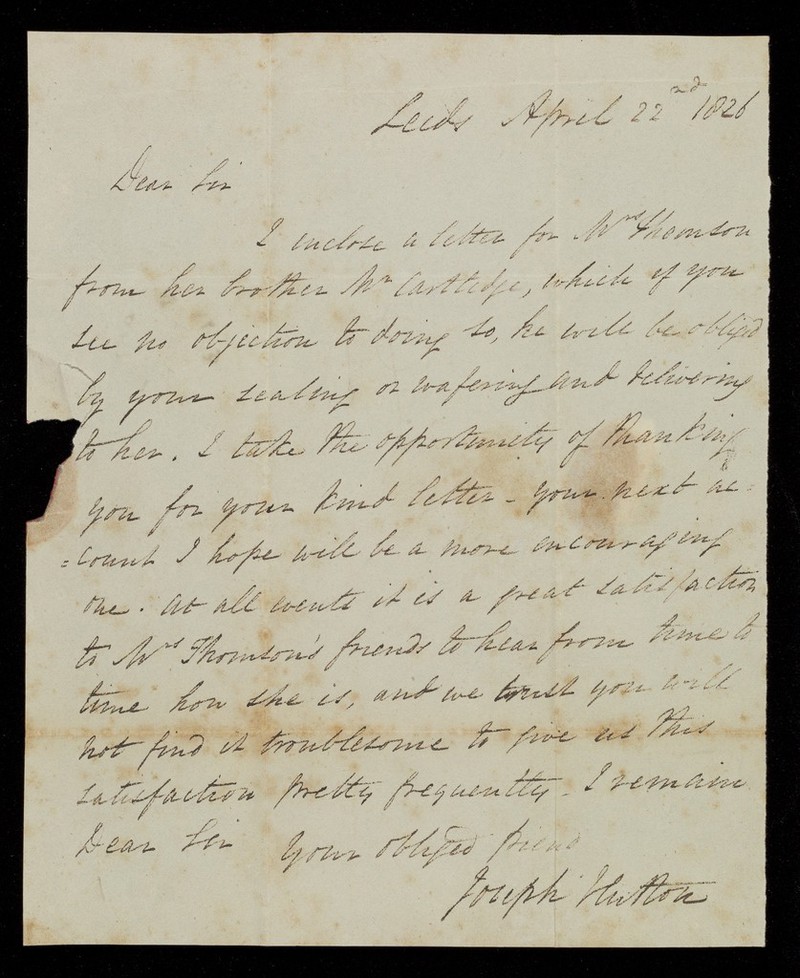 Leeds April 22nd 1826
Dear Sir
I enclose a letter for Mrs Thomson
from her brother Mr Cartledge, which if you
see no objection to doing so, he will be obliged
by your sealing or wafering and delivering
to her. I take the opportunity of thanking
you for your kind letter - your next ac=
=count I hope will be a more encouraging
one. at all events it is a great satisfaction
to Mrs Thomson's friends to hear from time to
time how she is, and we trust you will
not find it troublesome to give us this
satisfaction pretty frequently. I remain
Dear Sir your obliged friend
Joseph Hutton